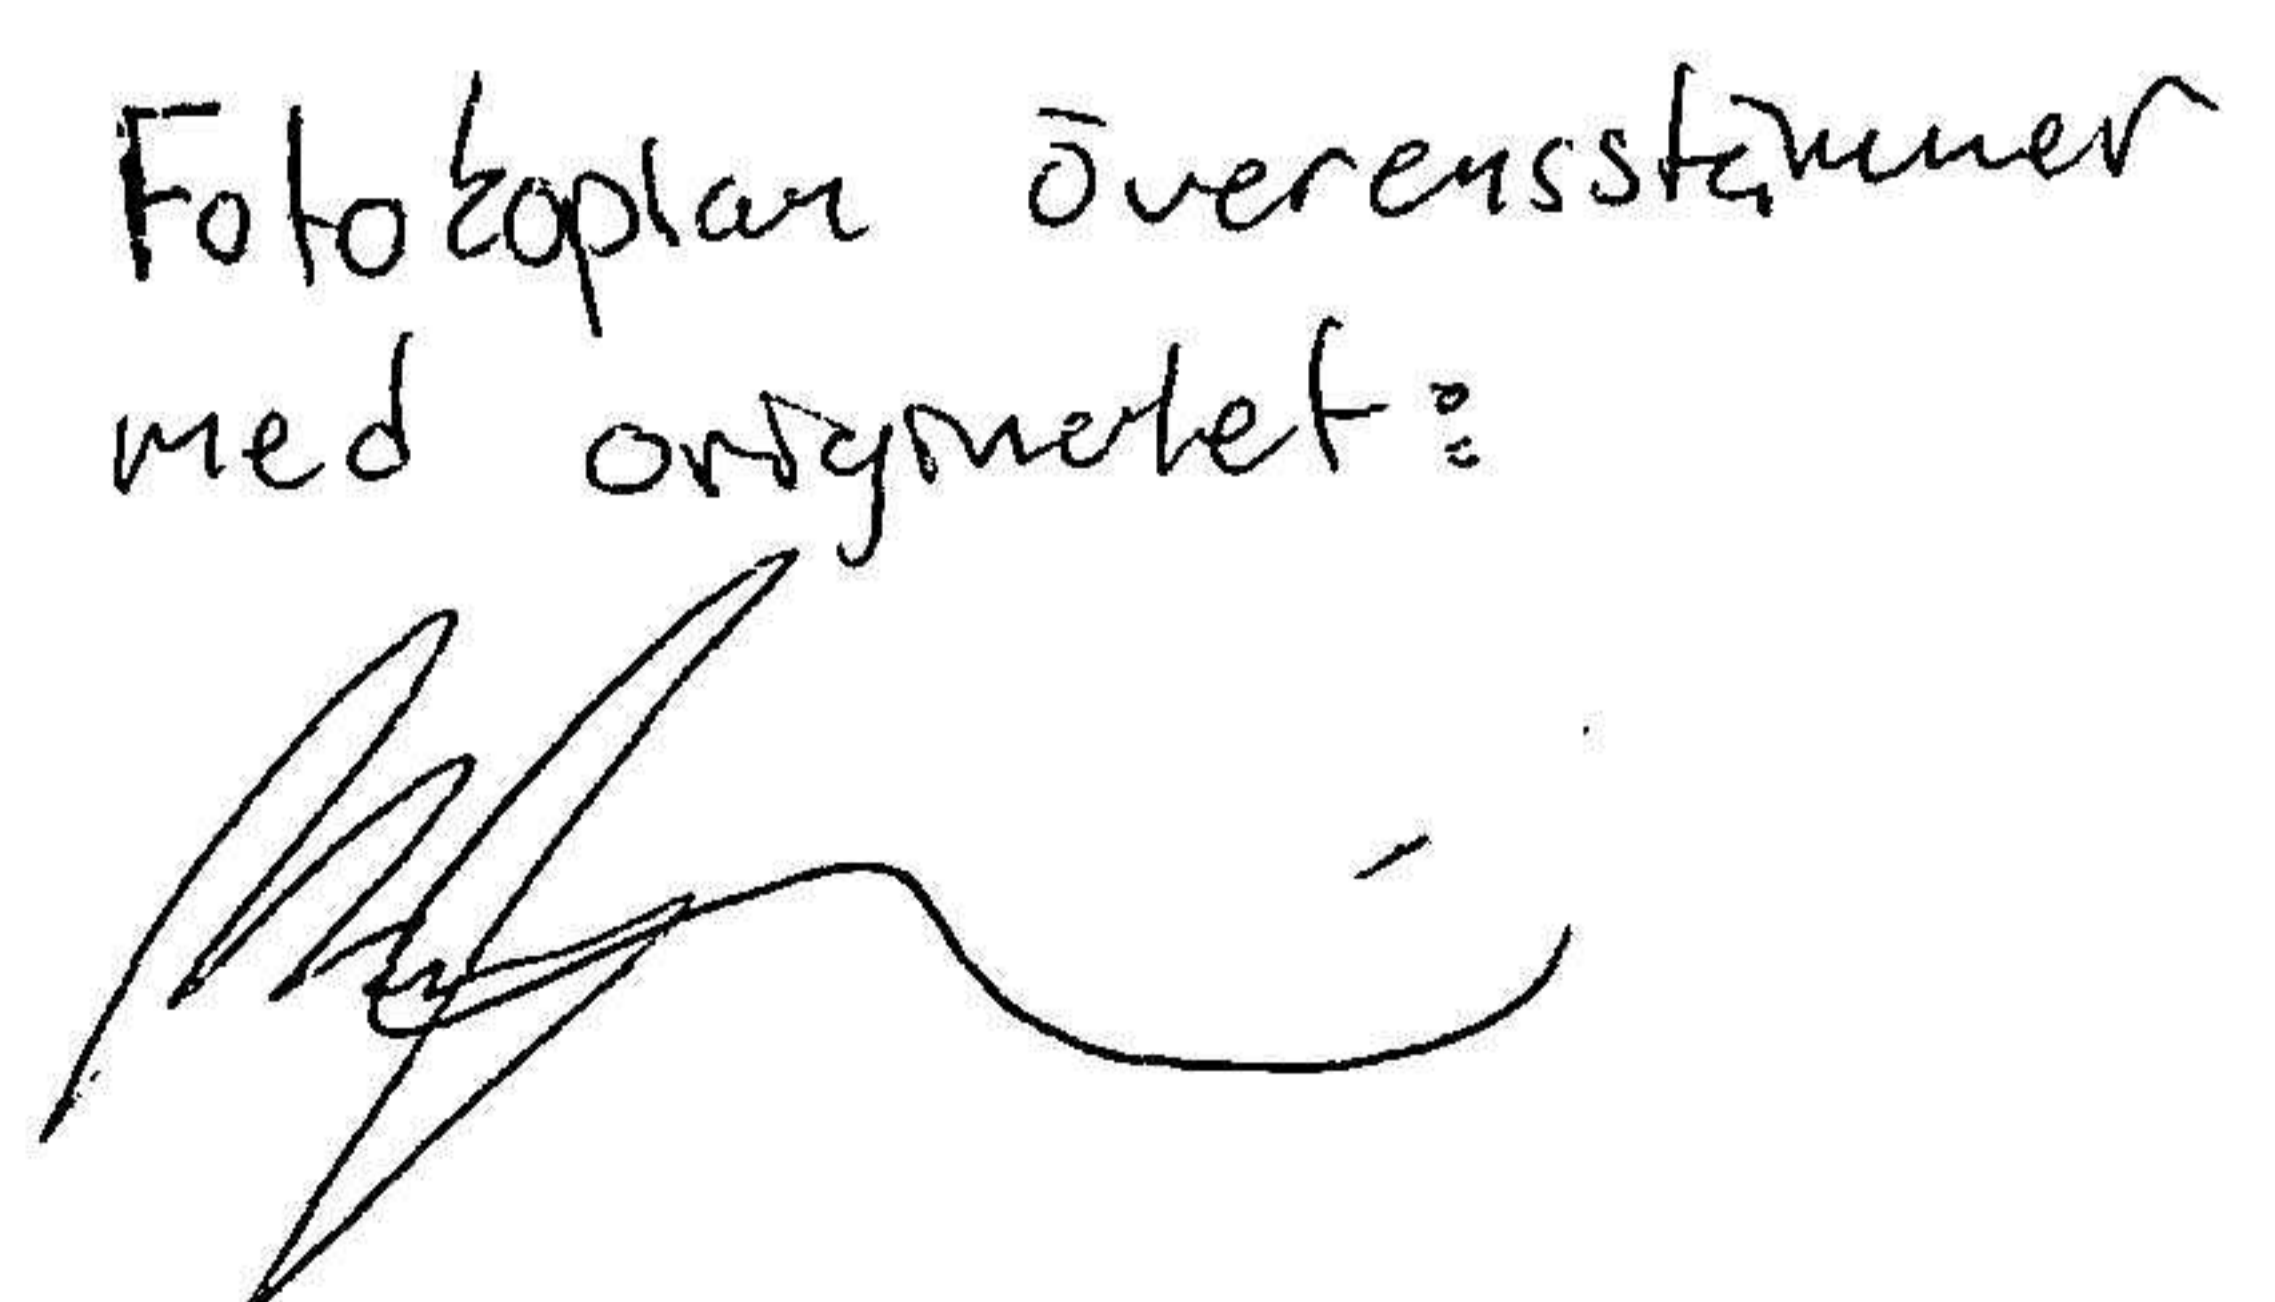 Fotokopian överensstämmer
med originalet: